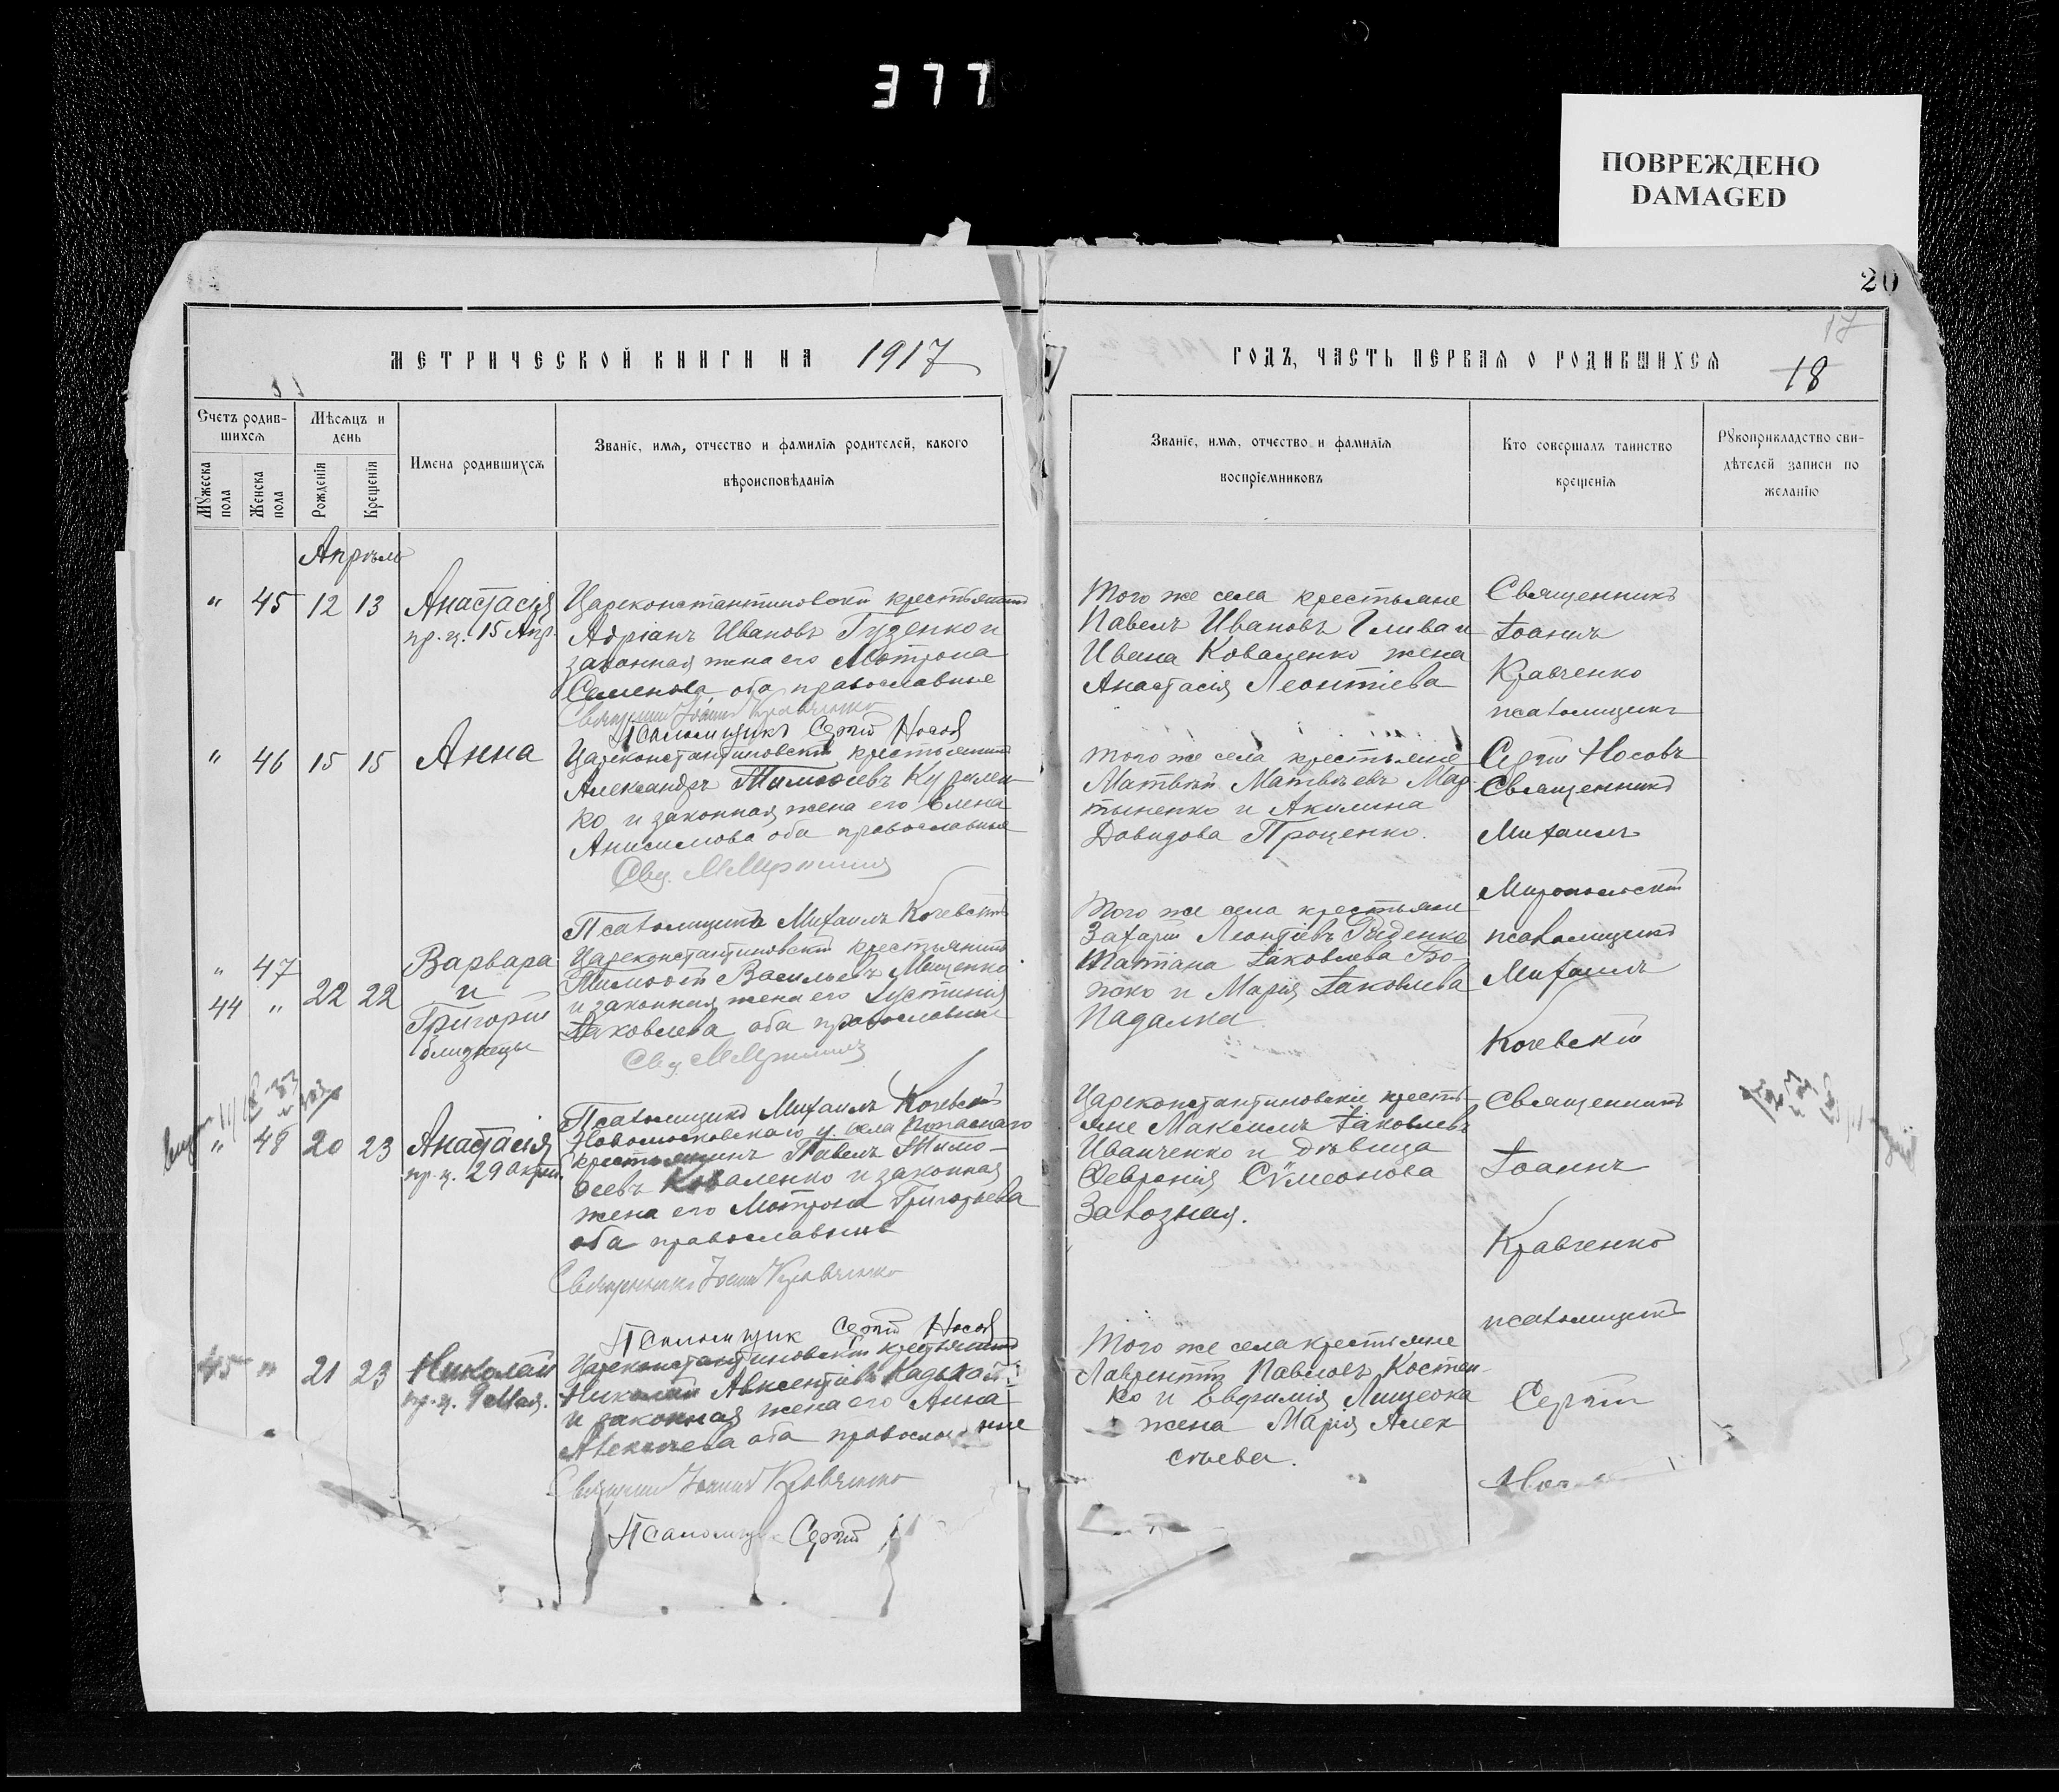 377
ПОВРЕЖДЕНО
DAMAGED
20
17
18
МЕТРИЧЕСКОЙ КНИГИ НА 1917
ГОДЪ, ЧАСТЬ ПЕРВАЯ О РОДИВШИХСЯ
Счетъ родив-
шихся
Мужеска пола
Женска пола
Мѣсяцъ и
день
Рожденія
Крещенія
Имена родившихся
Званіе, имя, отчество и фамилія родителей, какого
вѣроисповѣданія
Званіе, имя, отчество и фамилія
воспріемниковъ
Кто совершалъ таинство
крещенія
Рукоприкладство сви-
дѣтелей записи по
желанію
Апрѣль
" 45 12 13 Анастасія
пр. ц. 15 Апр.
Цареконстантиновскій крестьянинъ
Адріанъ Ивановъ Гузенко и
законная жена его Мотрона
Семенова, оба православные
Священникъ Іоаннъ Кравченко
Псаломщикъ Сергій Носовъ
Того же села крестьяне
Павелъ Ивановъ Глива и
Ивана Коваленко жена
Анастасія Леонтіева
Священникъ
Іоаннъ
Кравченко
псаломщикъ
Сергій Носовъ
" 46 15 15 Анна
Цареконстантиновскій крестьянинъ
Александръ Тимофеевъ Курилен-
ко и законная жена его Елена
Анисимова оба православные
Свящ.
Псаломщикъ Михаилъ Кочевскій
Того же села крестьяне
Матвѣй Матвѣевъ Мар-
тыненко и Акилина
Давидова Проценко.
Священникъ
Михаилъ
Миропольскій
псаломщикъ
Михаилъ
Кочевскій
" 47
44 "
22 22
Варвара
и
Григорій
близнецы
Цареконстантиновскій крестьянинъ
Тимофей Васильевъ Мищенко
и законная жена его Іустинія
Яковлева оба православные
Свящ.
Псаломщикъ Михаилъ Кочевскій
Того же села крестьяне
Захарій Леонтіевъ Руденко
Татіана Іаковлева Бо-
жко и Марія Іаковлева
Падалка
" 48 20 23 Анастасія
пр. ц. 29 апрѣл.
Новомосковскаго у. села
крестьянинъ Павелъ Тимо-
феевъ Коваленко и законная
жена его Мотрона Григорьева
оба православные
Священникъ Іоаннъ Кравченко
Псаломщик Сергій Носовъ
Цареконстантиновскіе кресть-
яне Максимъ Іаковлевъ
Иванченко и дѣвица
Февронія Сѵмеонова
Завозная.
Священникъ
Іоаннъ
Кравченко
псаломщикъ
Сергій
45 " 21 23 Николай
пр. ц. 9 Мая.
Цареконстантиновскій крестьянинъ
Николай Авксентіевъ
и законная жена его Анна
оба православные
Священникъ Іоаннъ Кравченко
Псаломщик Сергій
Того же села крестьяне
Лаврентій Павловъ Костен-
ко и Евфимія
жена Марія Алек
сѣева.